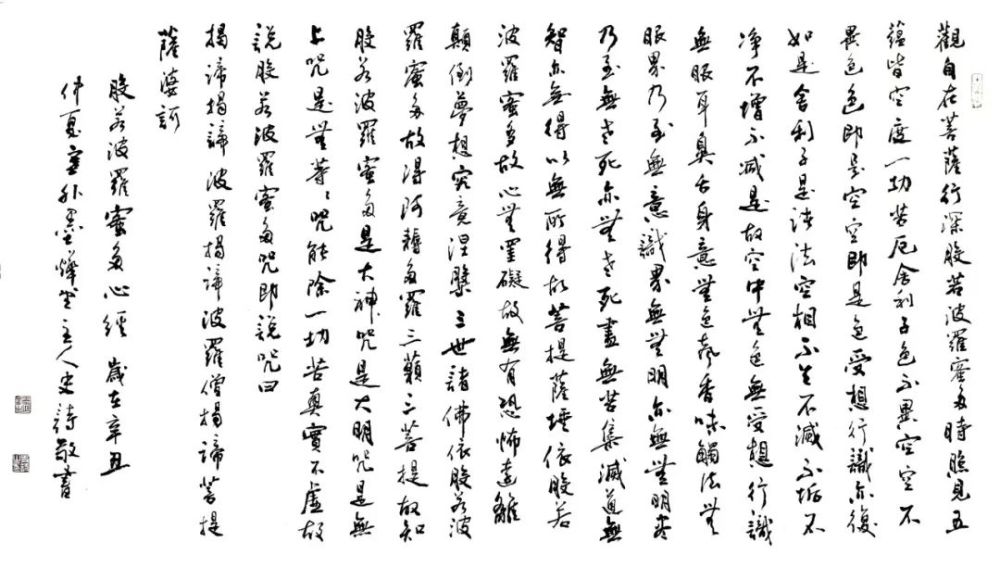 觀自在菩薩行深般若波羅蜜多時照見五
蘊皆空度一切苦厄舍利子色不異空空不
異色色即是空空即是色受想行識亦復
如是舍利子是諸法空相不生不滅不垢不
淨不增不減是故空中無色無受想行識
無眼耳鼻舌身意無色聲香味觸法無
眼界乃至無意識界無無明亦無無明盡
乃至無老死亦無老死盡無苦集滅道無
智亦無得以無所得故菩提薩埵依般若
波羅蜜多故心無罣礙故無有恐怖遠離
顛倒夢想究竟涅槃三世諸佛依般若波
羅蜜多故得阿耨多羅三藐三菩提故知
般若波羅蜜多是大神咒是大明咒是無
上咒是無等〻咒能除一切苦真實不虛故
說般若波羅蜜多咒即說咒曰
揭諦揭諦波羅揭諦波羅僧揭諦菩提
薩婆訶
般若波羅蜜多心經 歲在辛丑
仲夏塞外墨 堂主人史詩敬書